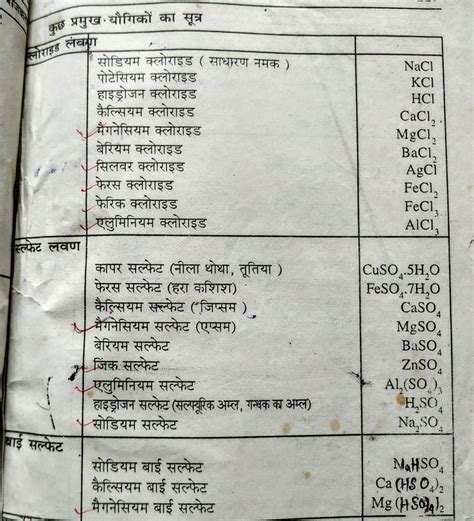 कुछ प्रमुख यौगिकों का सूत्र
क्लोराइड लवण
सोडियम क्लोराइड ( साधारण नमक ) NaCl
पोटेसियम क्लोराइड KCl
हाइड्रोजन क्लोराइड HCl
कैल्सियम क्लोराइड CaCl₂
मैगनेसियम क्लोराइड MgCl₂
बेरियम क्लोराइड BaCl₂
सिलवर क्लोराइड AgCl
फेरस क्लोराइड FeCl₂
फेरिक क्लोराइड FeCl₃
एलुमिनियम क्लोराइड AlCl₃
सल्फेट लवण
कापर सल्फेट (नीला थोथा, तूतिया ) CuSO₄.5H₂O
फेरस सल्फेट (हरा कशिश) FeSO₄.7H₂O
कैल्सियम सल्फेट ("जिप्सम ) CaSO₄
मैगनेसियम सल्फेट (एप्सम) MgSO₄
बेरियम सल्फेट BaSO₄
जिंक सल्फेट ZnSO₄
एलुमिनियम सल्फेट Al₂(SO₄)₃
हाइड्रोजन सल्फेट (सल्फ्यूरिक अम्ल, गन्धक का अम्ल) H₂SO₄
सोडियम सल्फेट Na₂SO₄
बाई सल्फेट
सोडियम बाई सल्फेट NaHSO₄
कैल्सियम बाई सल्फेट Ca (HSO₄)₂
मैगनेसियम बाई सल्फेट Mg (HSO₄)₂